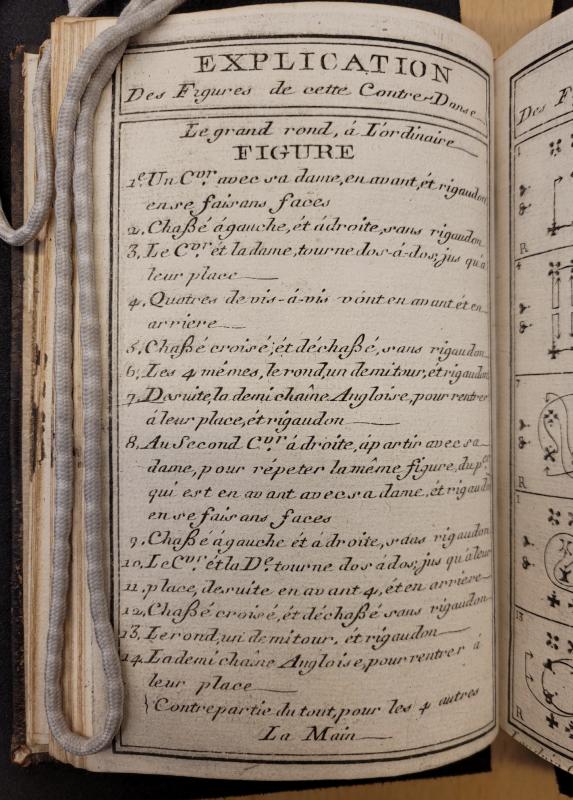 EXPLICATION
Des Figures de cette Contre-Danse
Le grand rond, á L'ordinaire
FIGURE
1e. Un Cvr. avec sa dame, en avant, ét rigaudon
en se faisans faces
2. Chaßé á gauche, ét á droite, sans rigaudon
3. Le Cvr. ét la dame, tourne dos-á-dos, jus qu'a
leur place
4. Quatres de vis-á-vis vont en avant ét en
arriere
5. Chaßé croisé; ét déchaßé, sans rigaudon
6. Les 4 mémes, le rond, un demi tour, ét rigaudon
7. De suite, la demi chaîne Angloise, pour rentrer
á leur place, ét rigaudon
8. Au Second Cvr. á droite, á partir avec sa
dame, pour répeter la méme figure, du per.
qui est en avant avec sa dame, ét rigaudon
en se faisans faces
9. Chaßé á gauche ét á droite, sans rigaudon
10. Le Cvr. ét la De. tourne dos á dos; jus qu'a leur
11. place, de suite en avant 4, ét en arriere
12. Chaßé croisé, ét déchaßé sans rigaudon
13. Le rond, un demi tour, ét rigaudon
14. La demi chaîne Angloise, pour rentrer á
leur place
Contrepartie du tout, pour les 4 autres
La Main
Des F
1
R
4
7
R
1
13
R